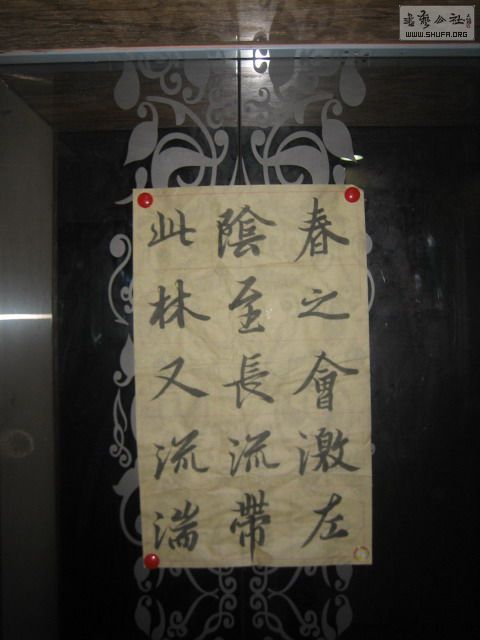 春之會激左
陰至長流帶
此林又流湍
書藝公社
WWW.SHUFA.ORG